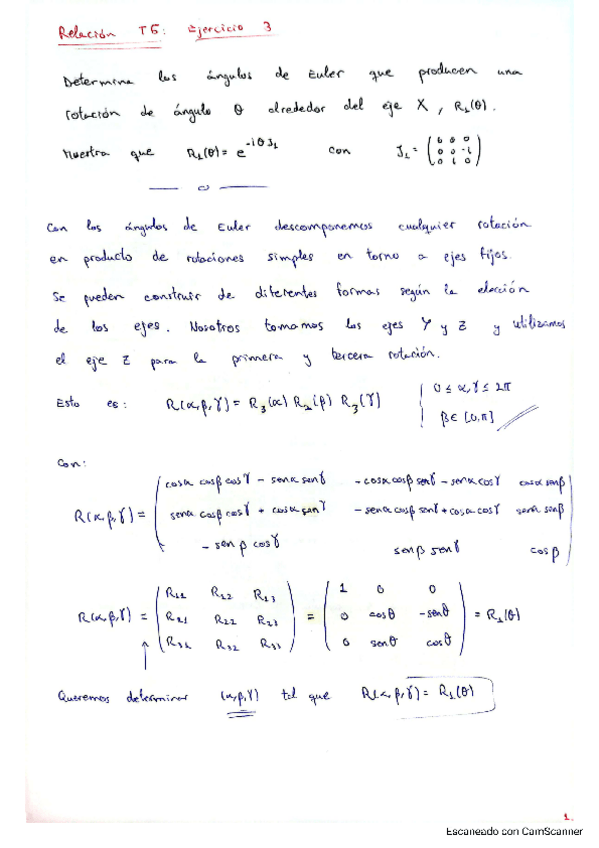 Relación T6: Ejercicio 3
Determina los ángulos de Euler que producen una
rotación de ángulo θ alrededor del eje X, R₁(θ).
Muestra que R₁(θ) = e^{-iθJ₁} con J₁ = (0 0 0
0 0 -i
0 i 0)
Con los ángulos de Euler descomponemos cualquier rotación
en producto de rotaciones simples en torno a ejes fijos.
Se pueden construir de diferentes formas según la elección
de los ejes. Nosotros tomamos los ejes Y y Z y utilizamos
el eje Z para la primera y tercera rotación.
Esto es: R(α,β,γ) = R₃(α) R₂(β) R₃(γ) 0 ≤ α,γ ≤ 2π
β ∈ [0,π]
Con:
R(α,β,γ) = (cosα cosβ cosγ - senα senγ -cosα cosβ senγ - senα cosγ cosα senβ
senα cosβ cosγ + cosα senγ -senα cosβ senγ + cosα cosγ senα senβ
-senβ cosγ senβ senγ cosβ)
R(α,β,γ) = (R₁₁ R₁₂ R₁₃
R₂₁ R₂₂ R₂₃
R₃₁ R₃₂ R₃₃) = (1 0 0
0 cosθ -senθ
0 senθ cosθ) = R₁(θ)
Queremos determinar (α,β,γ) tal que R(α,β,γ) = R₁(θ)
1.
Escaneado con CamScanner